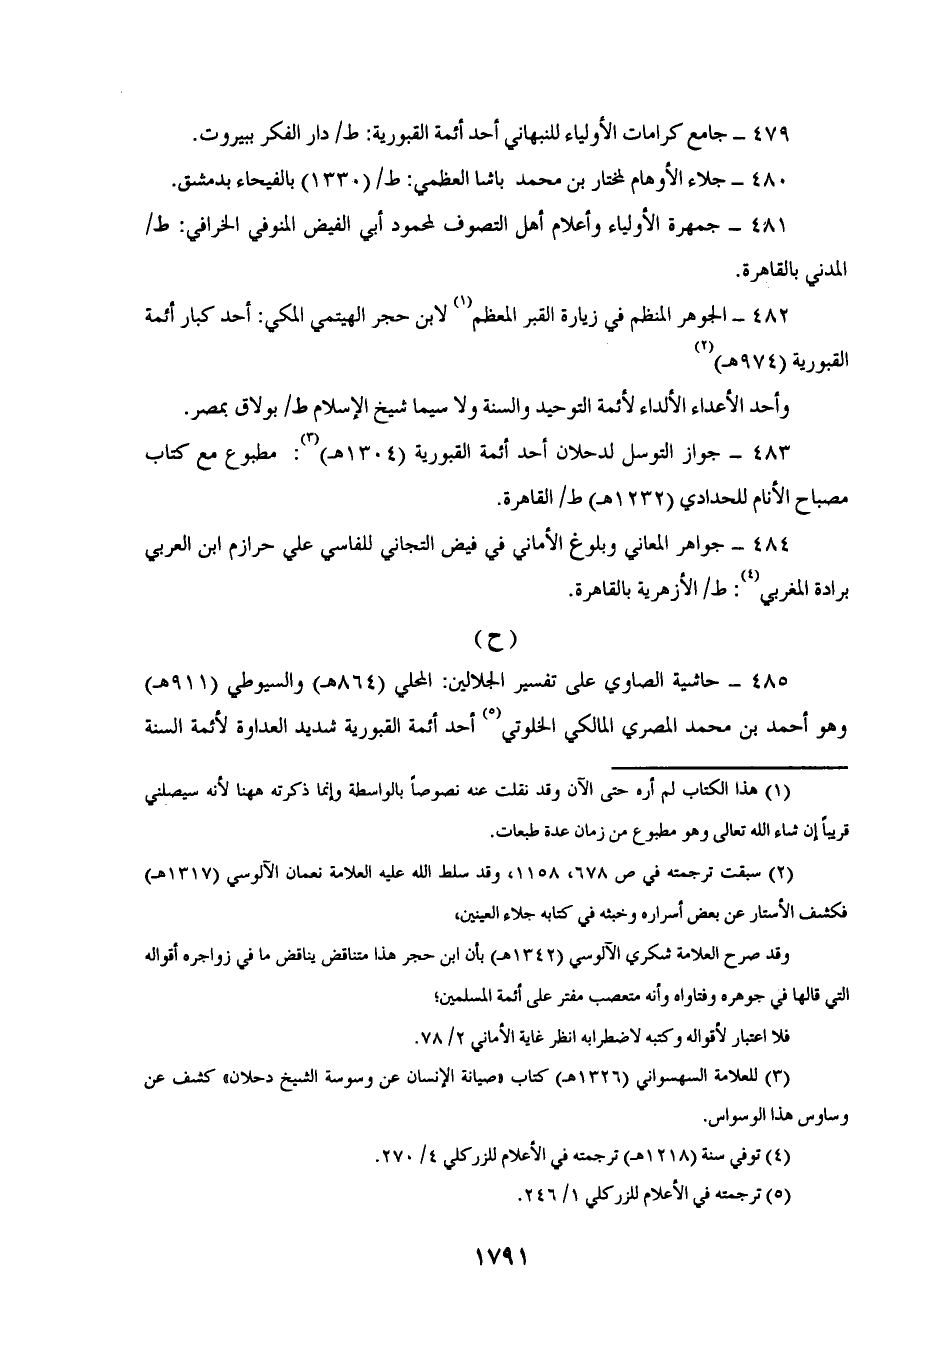 ٤٧٩ ـ جامع كرامات الأولياء للنبهاني أحد أئمة القبورية: ط/ دار الفكر ببيروت.
٤٨٠ ـ جلاء الأوهام لمختار بن محمد باشا العظمي: ط/ (١٣٣٠) بالفيحاء بدمشق.
٤٨١ ـ جمهرة الأولياء وأعلام أهل التصوف لمحمود أبي الفيض المنوفي الخرافي: ط/
المدني بالقاهرة.
٤٨٢ ـ الجوهر المنظم في زيارة القبر المعظم(١) لابن حجر الهيتمي المكي: أحد كبار أئمة
القبورية (٩٧٤هـ)(٢)
وأحد الأعداء الألداء لأئمة التوحيد والسنة ولا سيما شيخ الإسلام ط/ بولاق بمصر.
٤٨٣ ـ جواز التوسل لدحلان أحد أئمة القبورية (١٣٠٤هـ)(٣): مطبوع مع كتاب
مصباح الأنام للحدادي (١٢٣٢هـ) ط/ القاهرة.
٤٨٤ ـ جواهر المعاني وبلوغ الأماني في فيض التجاني للفاسي علي حرازم ابن العربي
برادة المغربي(٤): ط/ الأزهرية بالقاهرة.
(ح)
٤٨٥ ـ حاشية الصاوي على تفسير الجلالين: المحلي (٨٦٤هـ) والسيوطي (٩١١هـ)
وهو أحمد بن محمد المصري المالكي الخلوتي(٥) أحد أئمة القبورية شديد العداوة لأئمة السنة
(١) هذا الكتاب لم أره حتى الآن وقد نقلت عنه نصوصاً بالواسطة وإنما ذكرته ههنا لأنه سيصلني
قريباً إن شاء الله تعالى وهو مطبوع من زمان عدة طبعات.
(٢) سبقت ترجمته في ص ٦٧٨، ١١٥٨، وقد سلط الله عليه العلامة نعمان الآلوسي (١٣١٧هـ)
فكشف الأستار عن بعض أسراره وخبثه في كتابه جلاء العينين،
وقد صرح العلامة شكري الآلوسي (١٣٤٢هـ) بأن ابن حجر هذا متناقض يناقض ما في زواجره أقواله
التي قالها في جوهره وفتاواه وأنه متعصب مفتر على أئمة المسلمين؛
فلا اعتبار لأقواله وكتبه لاضطرابه انظر غاية الأماني ٢/ ٧٨.
(٣) للعلامة السهسواني (١٣٢٦هـ) كتاب «صيانة الإنسان عن وسوسة الشيخ دحلان» كشف عن
وساوس هذا الوسواس.
(٤) توفي سنة (١٢١٨هـ) ترجمته في الأعلام للزركلي ٤/ ٢٧٠.
(٥) ترجمته في الأعلام للزركلي ١/ ٢٤٦.
١٧٩١